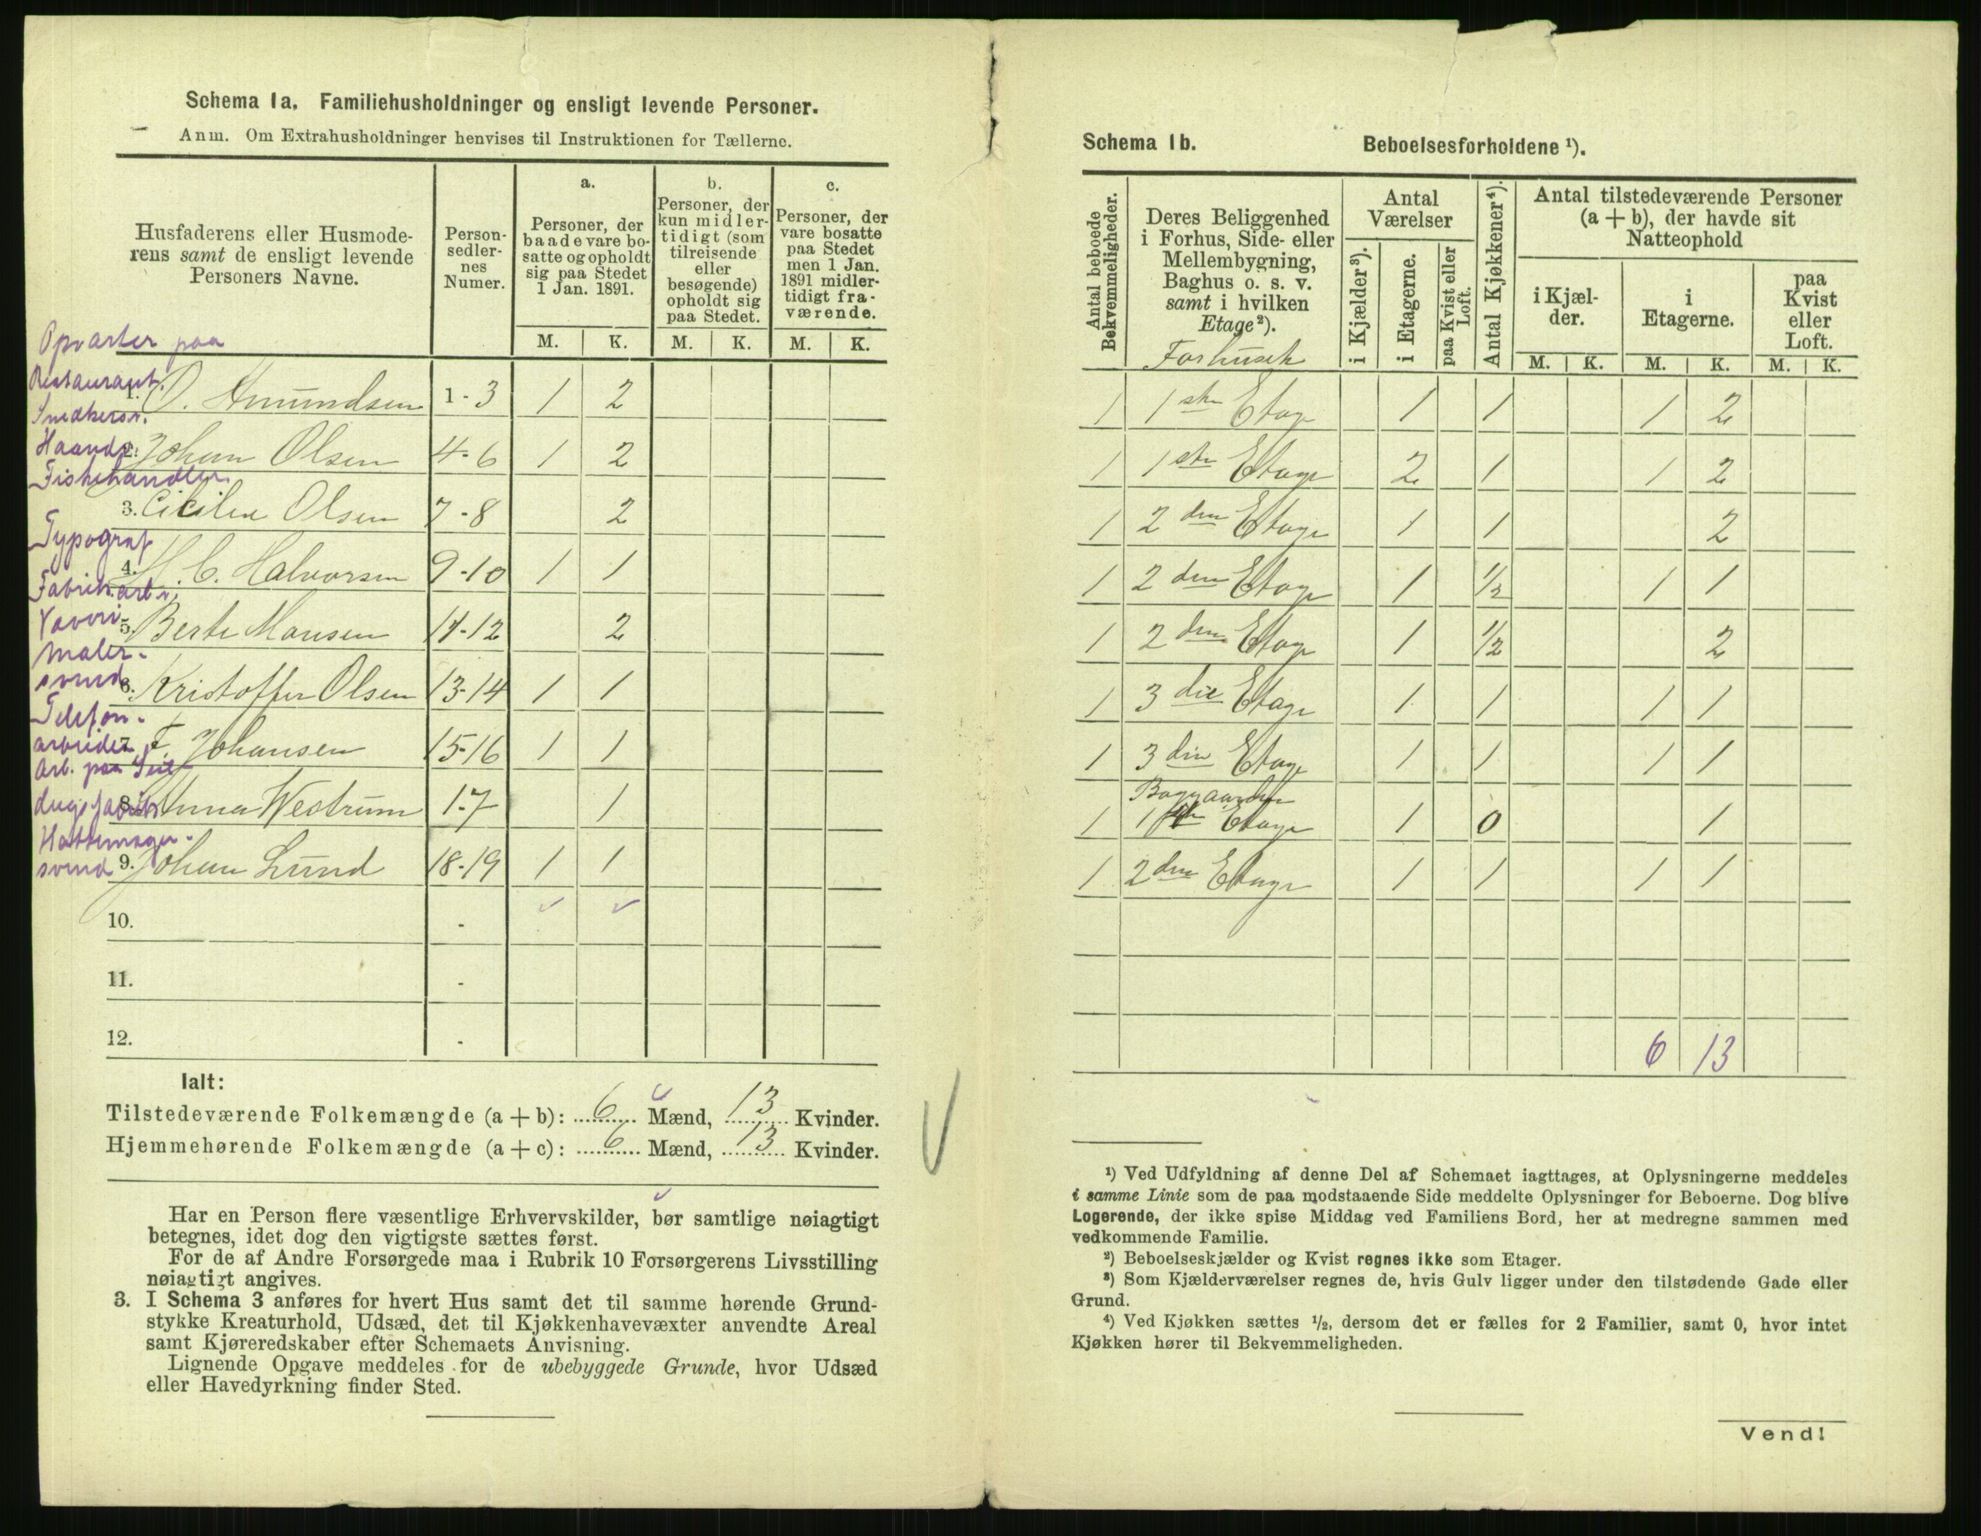 Schema 1a. Familiehusholdninger og ensligt levende Personer.
Anm. Om Extrahusholdninger henvises til Instruktionen for Tællerne.
Husfaderens eller Husmode-
rens samt de ensligt levende
Personers Navne.
Person-
sedler-
nes
Numer.
a.
Personer, der
baade vare bo-
satte og opholdt
sig paa Stedet
1 Jan. 1891.
b.
Personer, der
kun midler-
tidigt (som
tilreisende
eller
besøgende)
opholdt sig
paa Stedet.
c.
Personer, der
vare bosatte
paa Stedet
men 1 Jan.
1891 midler-
tidigt fra-
værende.
M. K. M. K. M. K.
Opvarter paa
Restaurant.
1. O. Amundsen 1-3 1 2
Snedkersv.
2. Johan Olsen 4-6 1 2
Fiskehandler
3. Cicilie Olsen 7-8 2
Typograf
4. H. C. Halvorsen 9-10 1 1
Fabrikarb.
5. Berte Monsen 11-12 2
Maler-
svend
6. Kristoffer Olsen 13-14 1 1
Telefon-
arbeider
7. F. Johansen 15-16 1 1
Arb. paa Seil-
dugsfabrik
8. Anna Westrum 17 1
Hattemager-
svend
9. Johan Lund 18-19 1 1
10. -
11. -
12. -
Ialt:
Tilstedeværende Folkemængde (a + b): 6 Mænd, 13 Kvinder.
Hjemmehørende Folkemængde (a + c): 6 Mænd, 13 Kvinder.
Har en Person flere væsentlige Erhvervskilder, bør samtlige nøiagtigt
betegnes, idet dog den vigtigste sættes først.
For de af Andre Forsørgede maa i Rubrik 10 Forsørgerens Livsstilling
nøiagtigt angives.
3. I Schema 3 anføres for hvert Hus samt det til samme hørende Grund-
stykke Kreaturhold, Udsæd, det til Kjøkkenhavevæxter anvendte Areal
samt Kjøreredskaber efter Schemaets Anvisning.
Lignende Opgave meddeles for de ubebyggede Grunde, hvor Udsæd
eller Havedyrkning finder Sted.
Schema 1b. Beboelsesforholdene ¹).
Antal beboede
Bekvemmeligheder.
Deres Beliggenhed
i Forhus, Side- eller
Mellembygning,
Baghus o. s. v.
samt i hvilken
Etage²).
Antal
Værelser
i Kjælder³).
i Etagerne.
paa Kvist eller
Loft.
Antal Kjøkkener⁴).
Antal tilstedeværende Personer
(a + b), der havde sit
Natteophold
i Kjæl-
der.
i
Etagerne.
paa
Kvist
eller
Loft.
M. K. M. K. M. K.
Forhuset
1 1ste Etage 1 1 1 2
1 1ste Etage 2 1 1 2
1 2den Etage 1 1 2
1 2den Etage 1 1/2 1 1
1 2den Etage 1 1/2 2
1 3die Etage 1 1 1 1
1 3die Etage 1 1 1 1
Baggaarden
1 1ste Etage 1 0 1
1 2den Etage 1 1 1 1
6 13
¹) Ved Udfyldning af denne Del af Schemaet iagttages, at Oplysningerne meddeles
i samme Linie som de paa modstaaende Side meddelte Oplysninger for Beboerne. Dog blive
Logerende, der ikke spise Middag ved Familiens Bord, her at medregne sammen med
vedkommende Familie.
²) Beboelseskjælder og Kvist regnes ikke som Etager.
³) Som Kjælderværelser regnes de, hvis Gulv ligger under den tilstødende Gade eller
Grund.
⁴) Ved Kjøkken sættes ½, dersom det er fælles for 2 Familier, samt 0, hvor intet
Kjøkken hører til Bekvemmeligheden.
Vend!